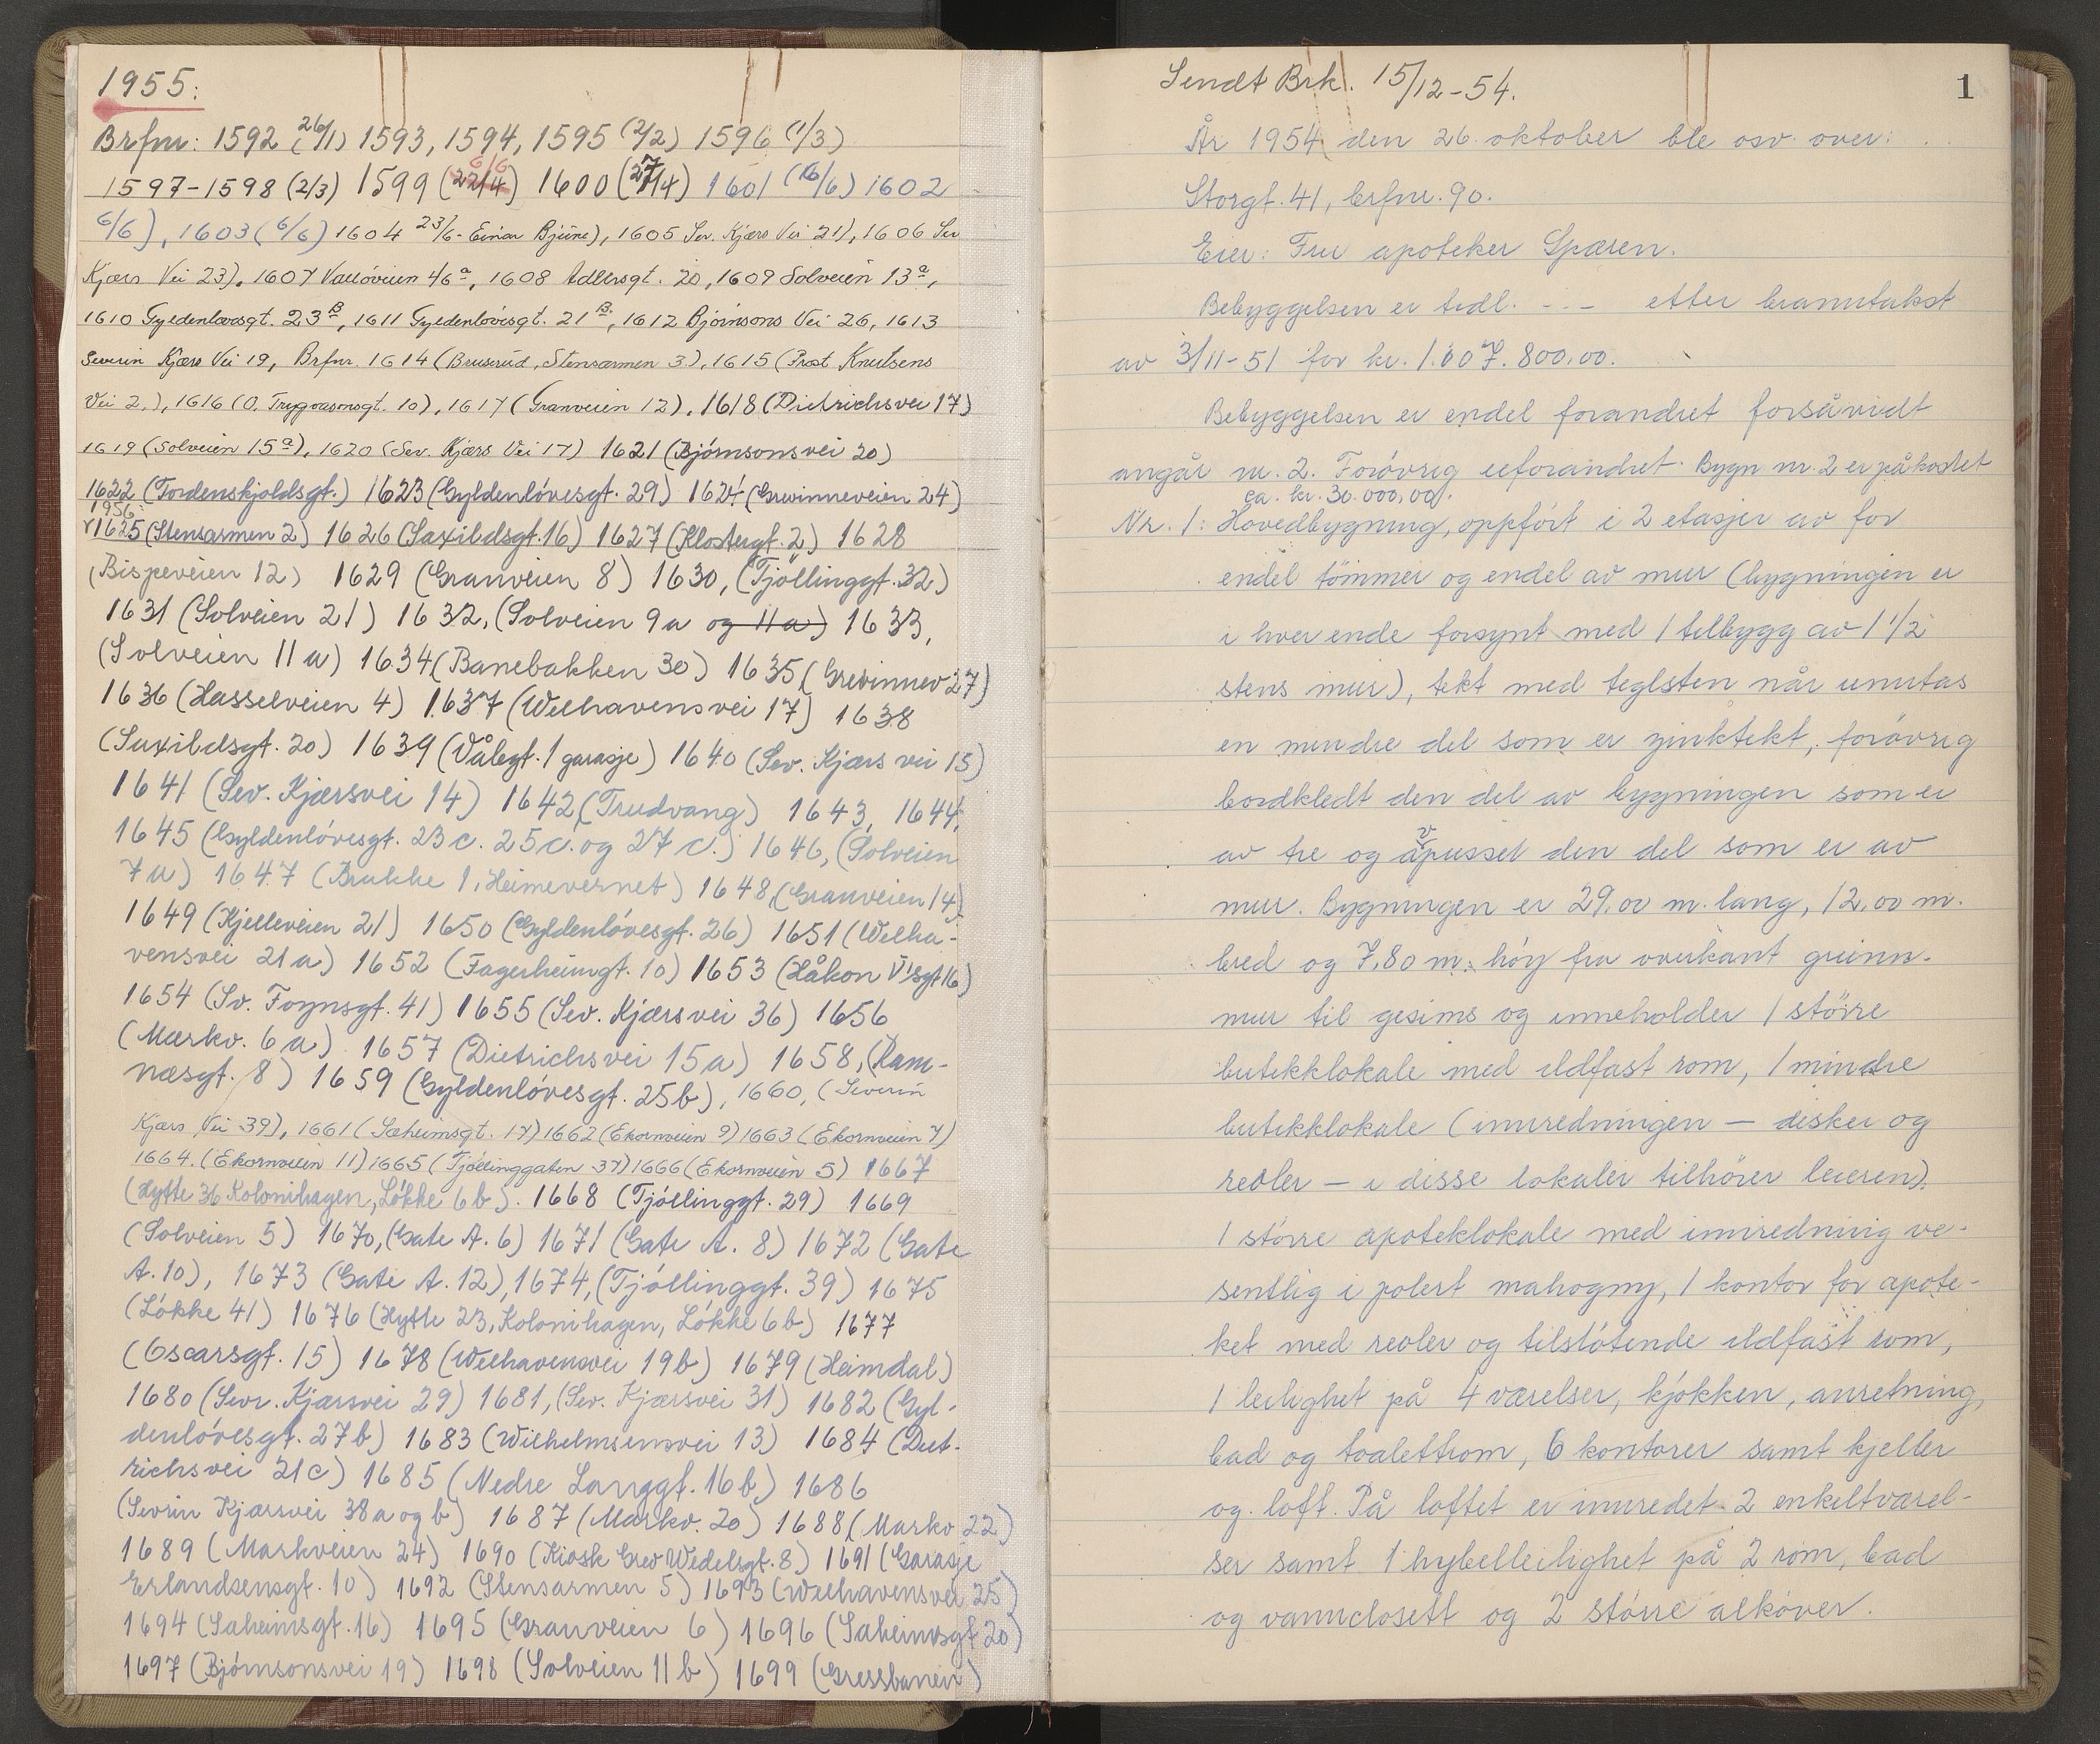 1955:
Brfnr: 1592 (26/1) 1593, 1594, 1595 (2/2) 1596 (1/3)
1597-1598 (2/3) 1599 (22/4) 6/6 1600 (27/4) 1601 (16/6) 1602
6/6), 1603 (6/6) 1604 23/6- Einar Bjune), 1605 Sev. Kjærs Vei 21), 1606 Sev
Kjærs Vei 23), 1607 Valløveien 46a, 1608 Adlersgt. 20, 1609 Solveien 13a,
1610 Gyldenløvesgt. 23B, 1611 Gyldenløvesgt. 21B, 1612 Bjørnsons Vei 26, 1613
Severin Kjærs Vei 19, Brfnr. 1614 (Bruserud, Stensarmen 3), 1615 (Prost Knutsens
Vei 2,), 1616 (O. Trygvasonsgt. 10), 1617 (Granveien 12), 1618 (Dietrichsvei 17)
1619 (Solveien 15a), 1620 (Sev. Kjærs Vei 17) 1621 (Bjørnsonsvei 20)
1622 (Tordenskjoldsgt.) 1623 (Gyldenløvesgt. 29) 1624 (Grevinneveien 24)
1956:
1625 (Stensarmen 2) 1626 (Saxildsgt. 16) 1627 (Klostergt. 2) 1628
(Bispeveien 12) 1629 (Granveien 8) 1630, (Tjøllinggt. 32)
1631 (Solveien 21) 1632, (Solveien 9a og 11a) 1633,
(Solveien 11a) 1634 (Banebakken 30) 1635 (Grevinnev 27)
1636 (Hasselveien 4) 1637 (Welhavensvei 17) 1638
(Saxildsgt. 20) 1639 (Vålegt. 1 garasje) 1640 (Sev. Kjærs vei 15)
1641 (Sev. Kjærsvei 14) 1642, (Trudvang) 1643, 1644,
1645 (Gyldenløvesgt. 23c. 25c. og 27c.) 1646, (Solveien
7a) 1647 (Brukke 1, Heimevernet) 1648, (Granveien 14)
1649 (Kjelleveien 21) 1650 (Gyldenløvesgt. 26) 1651 (Welha-
vensvei 21a) 1652 (Fagerheimgt. 10) 1653 (Håkon V'sgt 16)
1654 (Sv. Foynsgt. 41) 1655 (Sev. Kjærsvei 36) 1656
(Markv. 6a) 1657 (Dietrichsvei 15a) 1658, (Ram-
næsgt. 8) 1659 (Gyldenløvesgt. 25b), 1660, (Severin
Kjærs Vei 39), 1661 (Sæheimsgt. 17) 1662 (Ekornveien 9) 1663 (Ekornveien 7)
1664. (Ekornveien 11) 1665 (Tjøllinggaten 37) 1666 (Ekornveien 5) 1667
(Hytte 36 Kolonihagen, Løkke 6b). 1668 (Tjøllinggt. 29) 1669
(Solveien 5) 1670, (Gate A. 6) 1671 (Gate A. 8) 1672 (Gate
A. 10), 1673 (Gate A. 12), 1674, (Tjøllinggt. 39) 1675
(Løkke 41) 1676 (Hytte 23, Kolonihagen, Løkke 6b) 1677
(Oscarsgt. 15) 1678 (Welhavensvei 19b) 1679 (Heimdal)
1680 (Sevr. Kjærsvei 29) 1681, (Sev. Kjærsvei 31) 1682 (Gyl-
denløvesgt. 27b) 1683 (Wilhelmsensvei 13) 1684 (Diet-
richsvei 21c) 1685 (Nedre Langgt. 16b) 1686
(Sevrin Kjærsvei 38a og b) 1687 (Markv. 20) 1688 (Markv 22)
1689 (Markveien 24) 1690 (Kiosk Grev Wedelsgt. 8) 1691 (Garasje
Erlandsensgt. 10) 1692 (Stensarmen 5) 1693 (Welhavensvei 25)
1694 (Saheimsgt. 16) 1695 (Granveien 6) 1696 (Saheimsgt 20)
1697 (Bjørnsonsvei 19) 1698 (Solveien 11b) 1699 (Gressbanen)
Sendt Brk. 15/12-54.
1
År 1954 den 26. oktober ble osv. over:
Storgt. 41, brfnr. 90.
Eier: Fru apoteker Spæren.
Bebyggelsen er tidl. --- etter branntakst
av 3/11-51 for kr. 1.007.800,00.
Bebyggelsen er endel forandret forsåvidt
angår nr. 2. Forøvrig uforandret. Bygn nr. 2 er påkostet
ca. kr. 30.000,00.
Nr. 1: Hovedbygning, oppført i 2 etasjer av for
endel tømmer og endel av mur (bygningen er
i hver ende forsynt med 1 tilbygg av 1 1/2
stens mur), tekt med teglsten når unntas
en mindre del som er zinktekt, forøvrig
bordkledt den del av bygningen som er
av tre og avpusset den del som er av
mur. Bygningen er 29,00 m. lang, 12,00 m.
bred og 7,80 m. høy fra overkant grunn-
mur til gesims og inneholder 1 større
butikklokale med ildfast rom, 1 mindre
butikklokale (innredningen — disker og
reoler — i disse lokaler tilhører leieren).
1 større apoteklokale med innredning ve-
sentlig i polert mahogny, 1 kontor for apote-
ket med reoler og tilstøtende ildfast rom,
1 leilighet på 4 værelser, kjøkken, anretning,
bad og toalettrom, 6 kontorer samt kjeller
og loft. På loftet er innredet 2 enkeltværel-
ser samt 1 hybelleilighet på 2 rom, bad
og vannclosett og 2 større alkover.